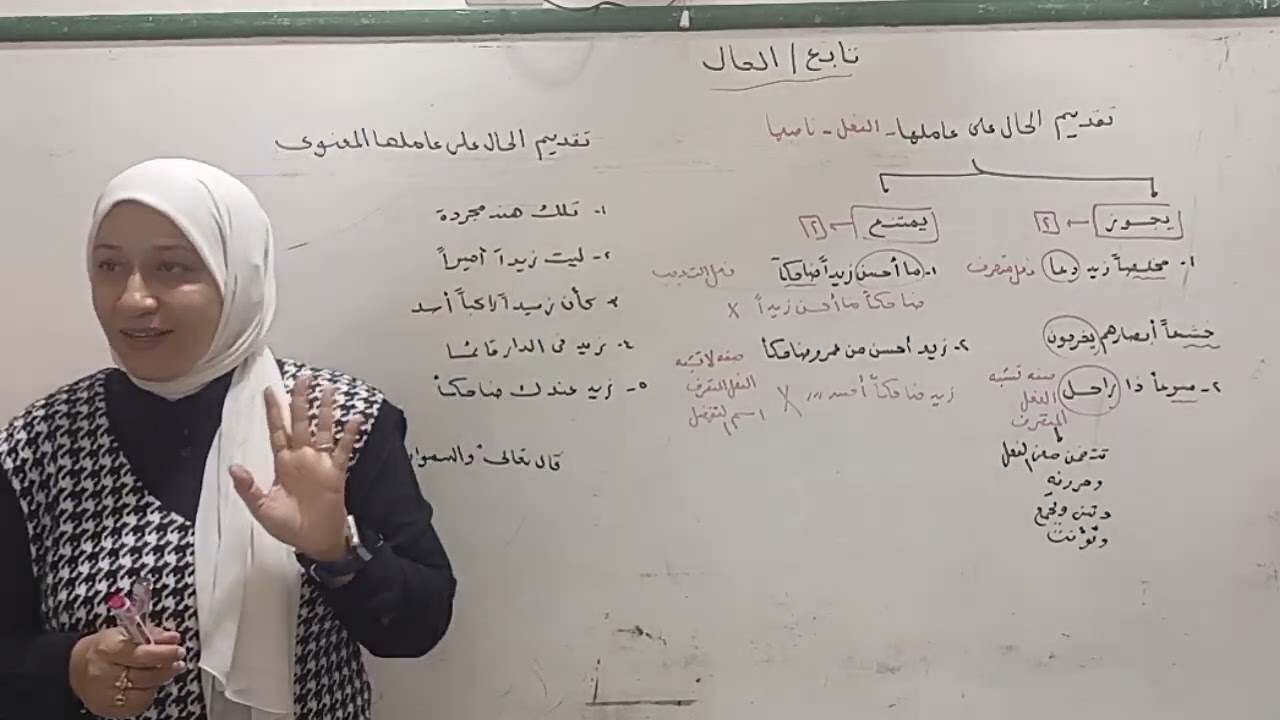 تابع / الحال
تقديم الحال على عاملها - الفعل - ناصبها
يجوز ← ٢
١- مخلصاً زيد دعا فعل متصرف
خشعاً أبصارهم يخرجون
٢- مسرعاً ذا راحل صفه تشبه
الفعل
المتصرف
تتضمن معنى الفعل
وحروفه
وتثنى وتجمع
وتؤنث
يمتنع ← ٢
١- ما أحسن زيداً ضاحكاً فعل التعجب
ضاحكاً ما أحسن زيداً X
٢- زيد أحسن من عمرو ضاحكاً صفه لا تشبه
زيد ضاحكاً أحسن ... X الفعل المتصرف
اسم التفضيل
تقديم الحال على عاملها المعنوى
١- تلك هند مجردة
٢- ليت زيداً أميراً
٣ كأن زيداً راكباً أسد
٤- زيد فى الدار قائما
٥- زيد عندك ضاحكاً
قال تعالى " والسموا